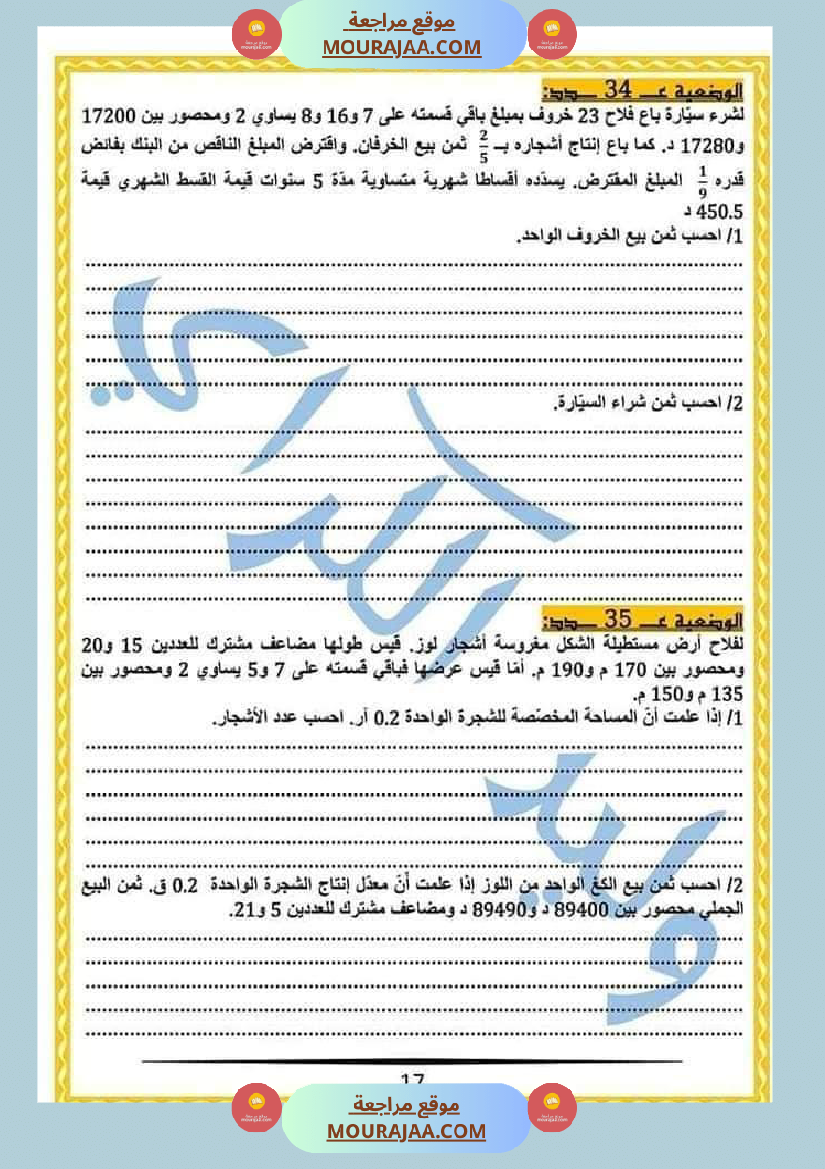 موقع مراجعة
MOURAJAA.COM
الوضعية عـــ 34 ــــدد:
لشرء سيّارة باع فلاح 23 خروف بمبلغ باقي قسمته على 7 و16 و8 يساوي 2 ومحصور بين 17200
و17280 د. كما باع إنتاج أشجاره بـ 2/5 ثمن بيع الخرفان. واقترض المبلغ الناقص من البنك بفائض
قدره 1/9 المبلغ المقترض. يسدّده أقساطا شهرية متساوية مدّة 5 سنوات قيمة القسط الشهري قيمة
450.5 د
1/ احسب ثمن بيع الخروف الواحد.
2/ احسب ثمن شراء السيّارة.
الوضعية عـــ 35 ــــدد:
لفلاح أرض مستطيلة الشكل مغروسة أشجار لوز. قيس طولها مضاعف مشترك للعددين 15 و20
ومحصور بين 170 م و190 م. أمّا قيس عرضها فباقي قسمته على 7 و5 يساوي 2 ومحصور بين
135 م و150 م.
1/ إذا علمت أنّ المساحة المخصّصة للشجرة الواحدة 0.2 آر. احسب عدد الأشجار.
2/ احسب ثمن بيع الكغ الواحد من اللوز إذا علمت أنّ معدّل إنتاج الشجرة الواحدة 0.2 ق. ثمن البيع
الجملي محصور بين 89400 د و89490 د ومضاعف مشترك للعددين 5 و21.
17
موقع مراجعة
MOURAJAA.COM